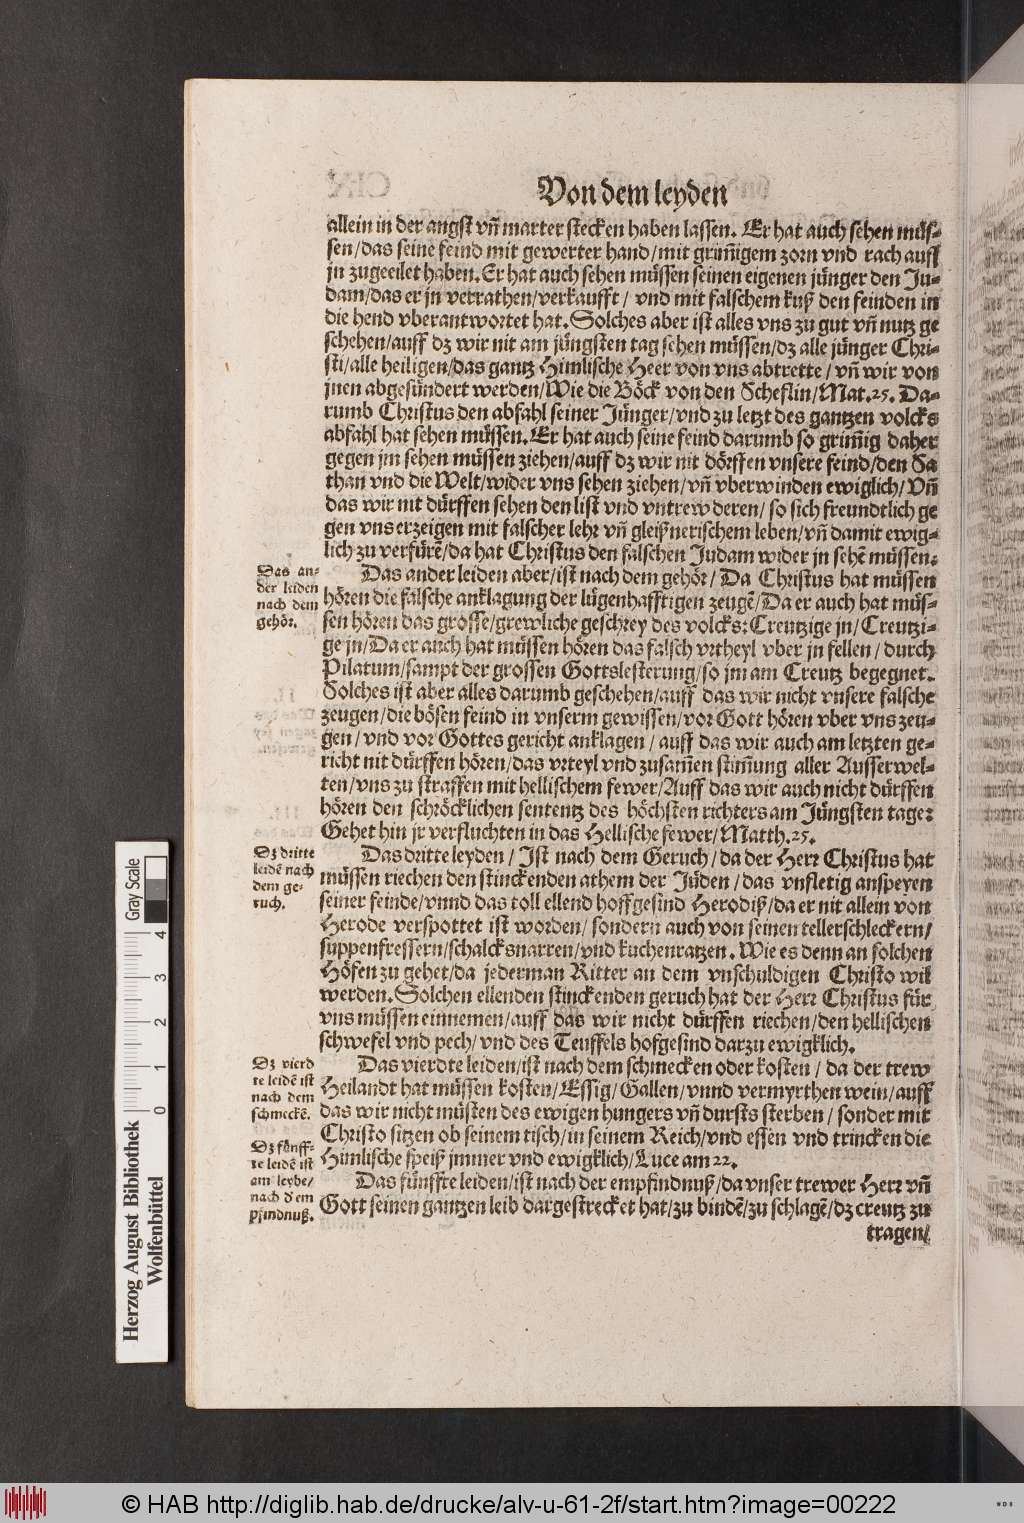 Von dem leyden
allein in der angst vñ marter stecken haben lassen. Er hat auch sehen müs-
sen/das seine feind mit gewerter hand/mit grim̃igem zorn vnd rach auff
jn zugeeilet haben. Er hat auch sehen müssen seinen eigenen jünger den Ju-
dam/das er jn verrathen/verkaufft/ vnd mit falschem kuß den feinden in
die hend vberantwortet hat. Solches aber ist alles vns zu gut vñ nutz ge
schehen/auff dz wir nit am jüngsten tag sehen müssen/dz alle jünger Chri-
sti/alle heiligen/das gantz Himlische Heer von vns abtrette/ vñ wir von
jnen abgesündert werden/Wie die Böck von den Scheflin/Mat.25. Da-
rumb Christus den abfahl seiner Jünger/vnd zu letzt des gantzen volcks
abfahl hat sehen müssen. Er hat auch seine feind darumb so grim̃ig daher
gegen jm sehen müssen ziehen/auff dz wir nit dörffen vnsere feind/den Sa
than vnd die Welt/wider vns sehen ziehen/vñ vberwinden ewiglich/Vñ
das wir nit dürffen sehen den list vnd vntrew deren/ so sich freundtlich ge
gen vns erzeigen mit falscher lehr vñ gleißnerischem leben/vñ damit ewig-
lich zu verfürẽ/da hat Christus den falschen Judam wider jn sehẽ müssen.
Das an-
der leiden
nach dem
gehör.
Das ander leiden aber/ist nach dem gehör/ Da Christus hat müssen
hören die falsche anklagung der lügenhafftigen zeugẽ/Da er auch hat müs-
sen hören das grosse/grewliche geschrey des volcks: Creutzige jn/Creutzi-
ge jn/Da er auch hat müssen hören das falsch vrtheyl vber jn fellen/ durch
Pilatum/sampt der grossen Gottslesterung/so jm am Creutz begegnet.
Solches ist aber alles darumb geschehen/auff das wir nicht vnsere falsche
zeugen/die bösen feind in vnserm gewissen/vor Gott hören vber vns zeu-
gen/vnd vor Gottes gericht anklagen/ auff das wir auch am letzten ge-
richt nit dürffen hören/das vrteyl vnd zusam̃en stim̃ung aller Ausserwel-
ten/vns zu straffen mit hellischem fewer/Auff das wir auch nicht dürffen
hören den schröcklichen sententz des höchsten richters am Jüngsten tage:
Gehet hin jr verfluchten in das Hellische fewer/Matth.25.
Dz dritte
leidẽ nach
dem ge-
ruch.
Das dritte leyden/ Ist nach dem Geruch/da der Herr Christus hat
müssen riechen den stinckenden athem der Jüden/das vnfletig anspeyen
seiner feinde/vnnd das toll ellend hoffgesind Herodiß/da er nit allein von
Herode verspottet ist worden/ sondern auch von seinen tellerschleckern/
suppenfressern/schalcksnarren/vnd kuchenratzen. Wie es denn an solchen
Höfen zu gehet/da jederman Ritter an dem vnschuldigen Christo wil
werden. Solchen ellenden stinckenden geruch hat der Herr Christus für
vns müssen einnemen/auff das wir nicht dürffen riechen/den hellischen
schwefel vnd pech/vnd des Teuffels hofgesind darzu ewigklich.
Dz vierd
te leidẽ ist
nach dem
schmeckẽ.
Das vierdte leiden/ist nach dem schmecken oder kosten/ da der trew
Heilandt hat müssen kosten/Essig/Gallen/vnnd vermyrthen wein/auff
das wir nicht müsten des ewigen hungers vñ dursts sterben/ sonder mit
Christo sitzen ob seinem tisch/in seinem Reich/vnd essen vnd trincken die
Himlische speiß jmmer vnd ewigklich/Luce am 22.
Dz fünff-
te leidẽ ist
am leybe/
nach d'em
pfindnuß.
Das fünffte leiden/ist nach der empfindnuß/da vnser trewer Herr vñ
Gott seinen gantzen leib dargestrecket hat/zu bindẽ/zu schlagẽ/dz creutz zu
tragen/
Herzog August Bibliothek
Wolfenbüttel
0 1 2 3 4
Gray Scale
© HAB http://diglib.hab.de/drucke/alv-u-61-2f/start.htm?image=00222